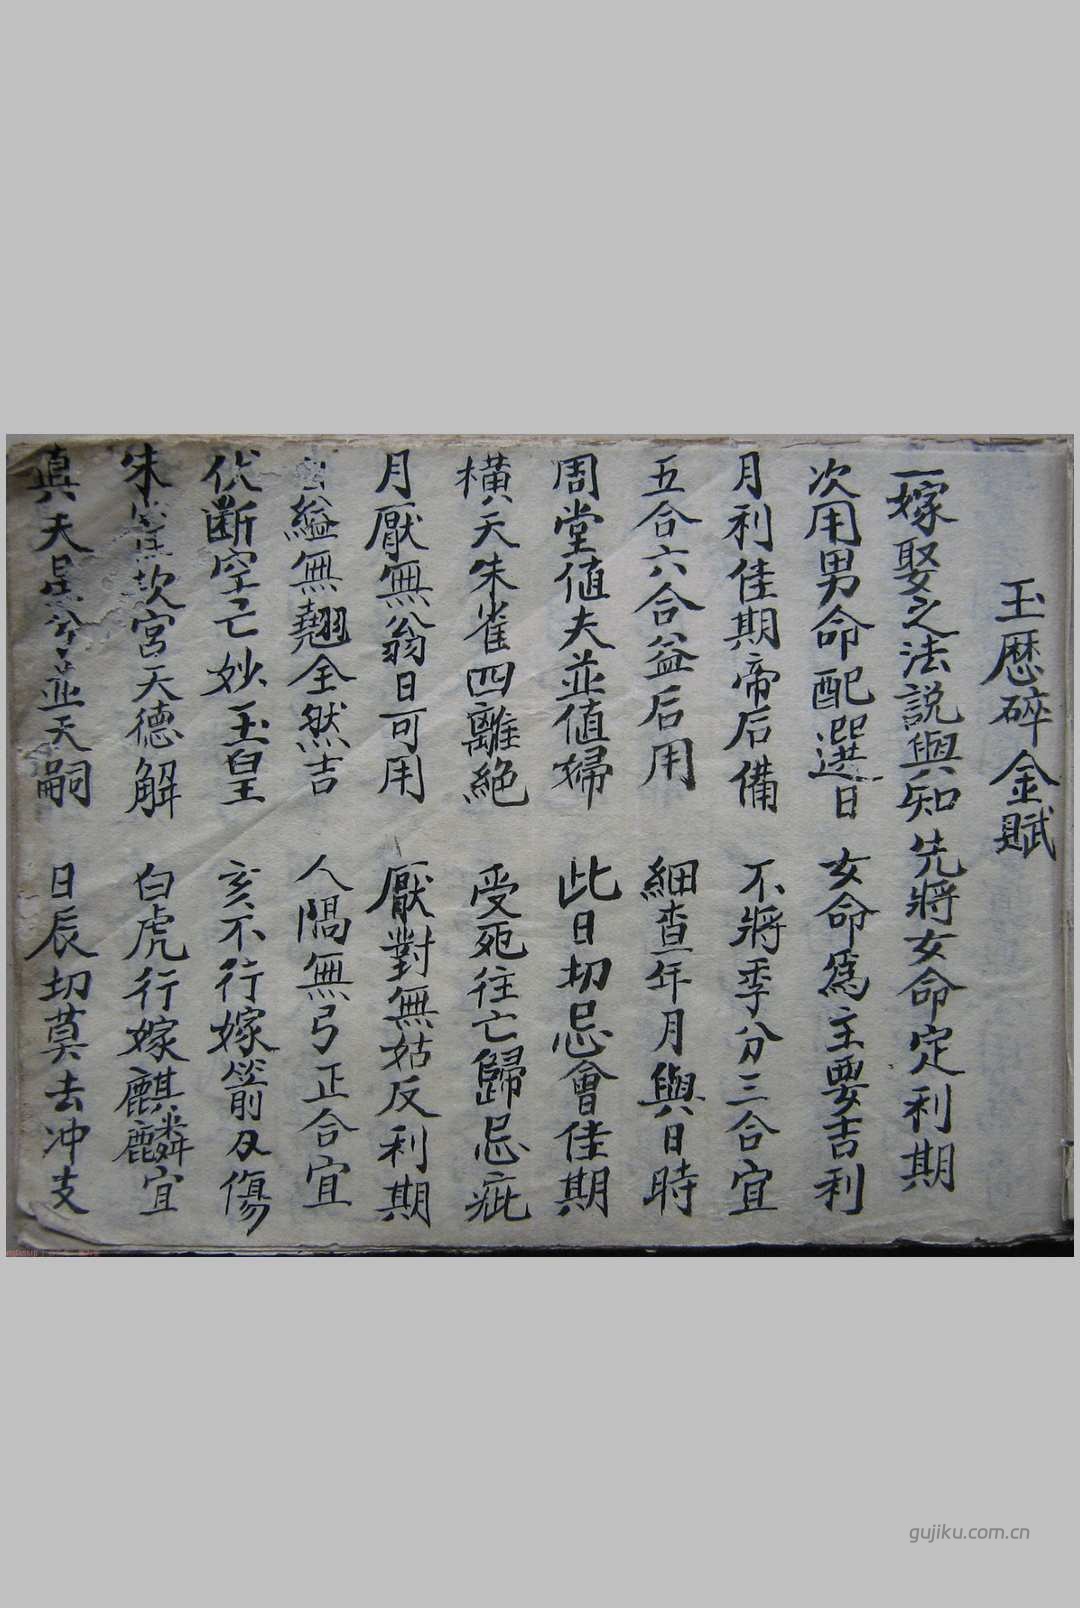 玉歷碎金賦
一嫁娶之法說與知先將女命定利期
次用男命配選日 女命爲主要吉利
月利佳期帝后備 不將季分三合宜
五合六合益后用 細查年月與日時
周堂値夫並値婦 此日切忌會佳期
橫天朱雀四離絕 受死往亡歸忌疵
月厭無翁日可用 厭對無姑反利期
縊無翹全然吉 人隔無弓正合宜
伏断空亡妙玉皇 亥不行嫁箭刄傷
朱雀坎宮天德解 白虎行嫁麒麟宜
真夫星兮並天嗣 日辰切莫去冲支
gujiku.com.cn